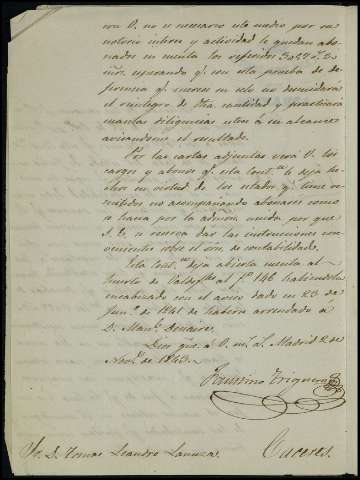 con V. no es necesario este medio por su
notorio interes y actividad le quedan abo
nados en cuenta los referidos 3o27 r.s
esperando q.e con esta prueba de de
ferencia q.e merece en ello no descuidará
el reintegro de dha. cantidad y practicará
cuantas diligencias esten á su alcance
avisandome el resultado.
Por las cartas adjuntas verá V. los
cargos y abonos q.e esta Cont.ria le deja he
chos en virtud de los estados q.e tiene re
mitidos no acompañando abonares como
se hacia por la admon. unida por que
S. E. se reserva dár las instrucciones con
venientes sobre el orn. de contabilidad.
Esta Cont.ria deja abierta cuenta al
huerto de al f.o 146 habiendola
encabezado con el aviso dado en 23 de
Jun.o de 1841 de haberse arrendado á
D. Man.l
Dios gue. a V. m.s a.s Madrid 2 de
Nov.e de 1843.
Faustino Trigueros
Sr. D. Tomas Leandro Lanuza. Caceres.